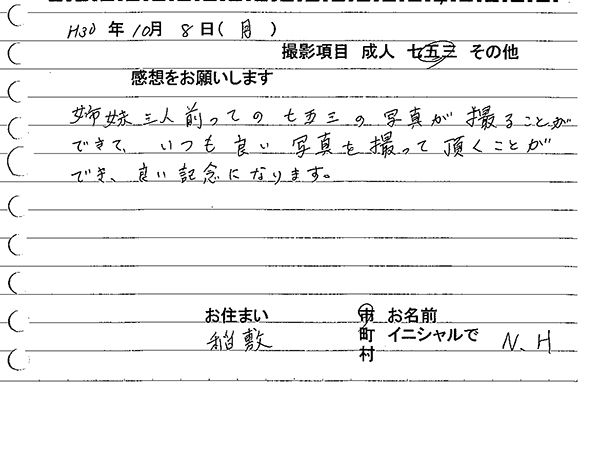 H30 年 10月 8 日( 月 )
撮影項目 成人 七五三 その他
感想をお願いします
姉妹三人前っての七五三の写真が撮ることが
できて、いつも良い写真を撮って頂くことが
でき、良い記念になります。
お住まい 市 お名前
稲敷 町 イニシャルで N、H
村